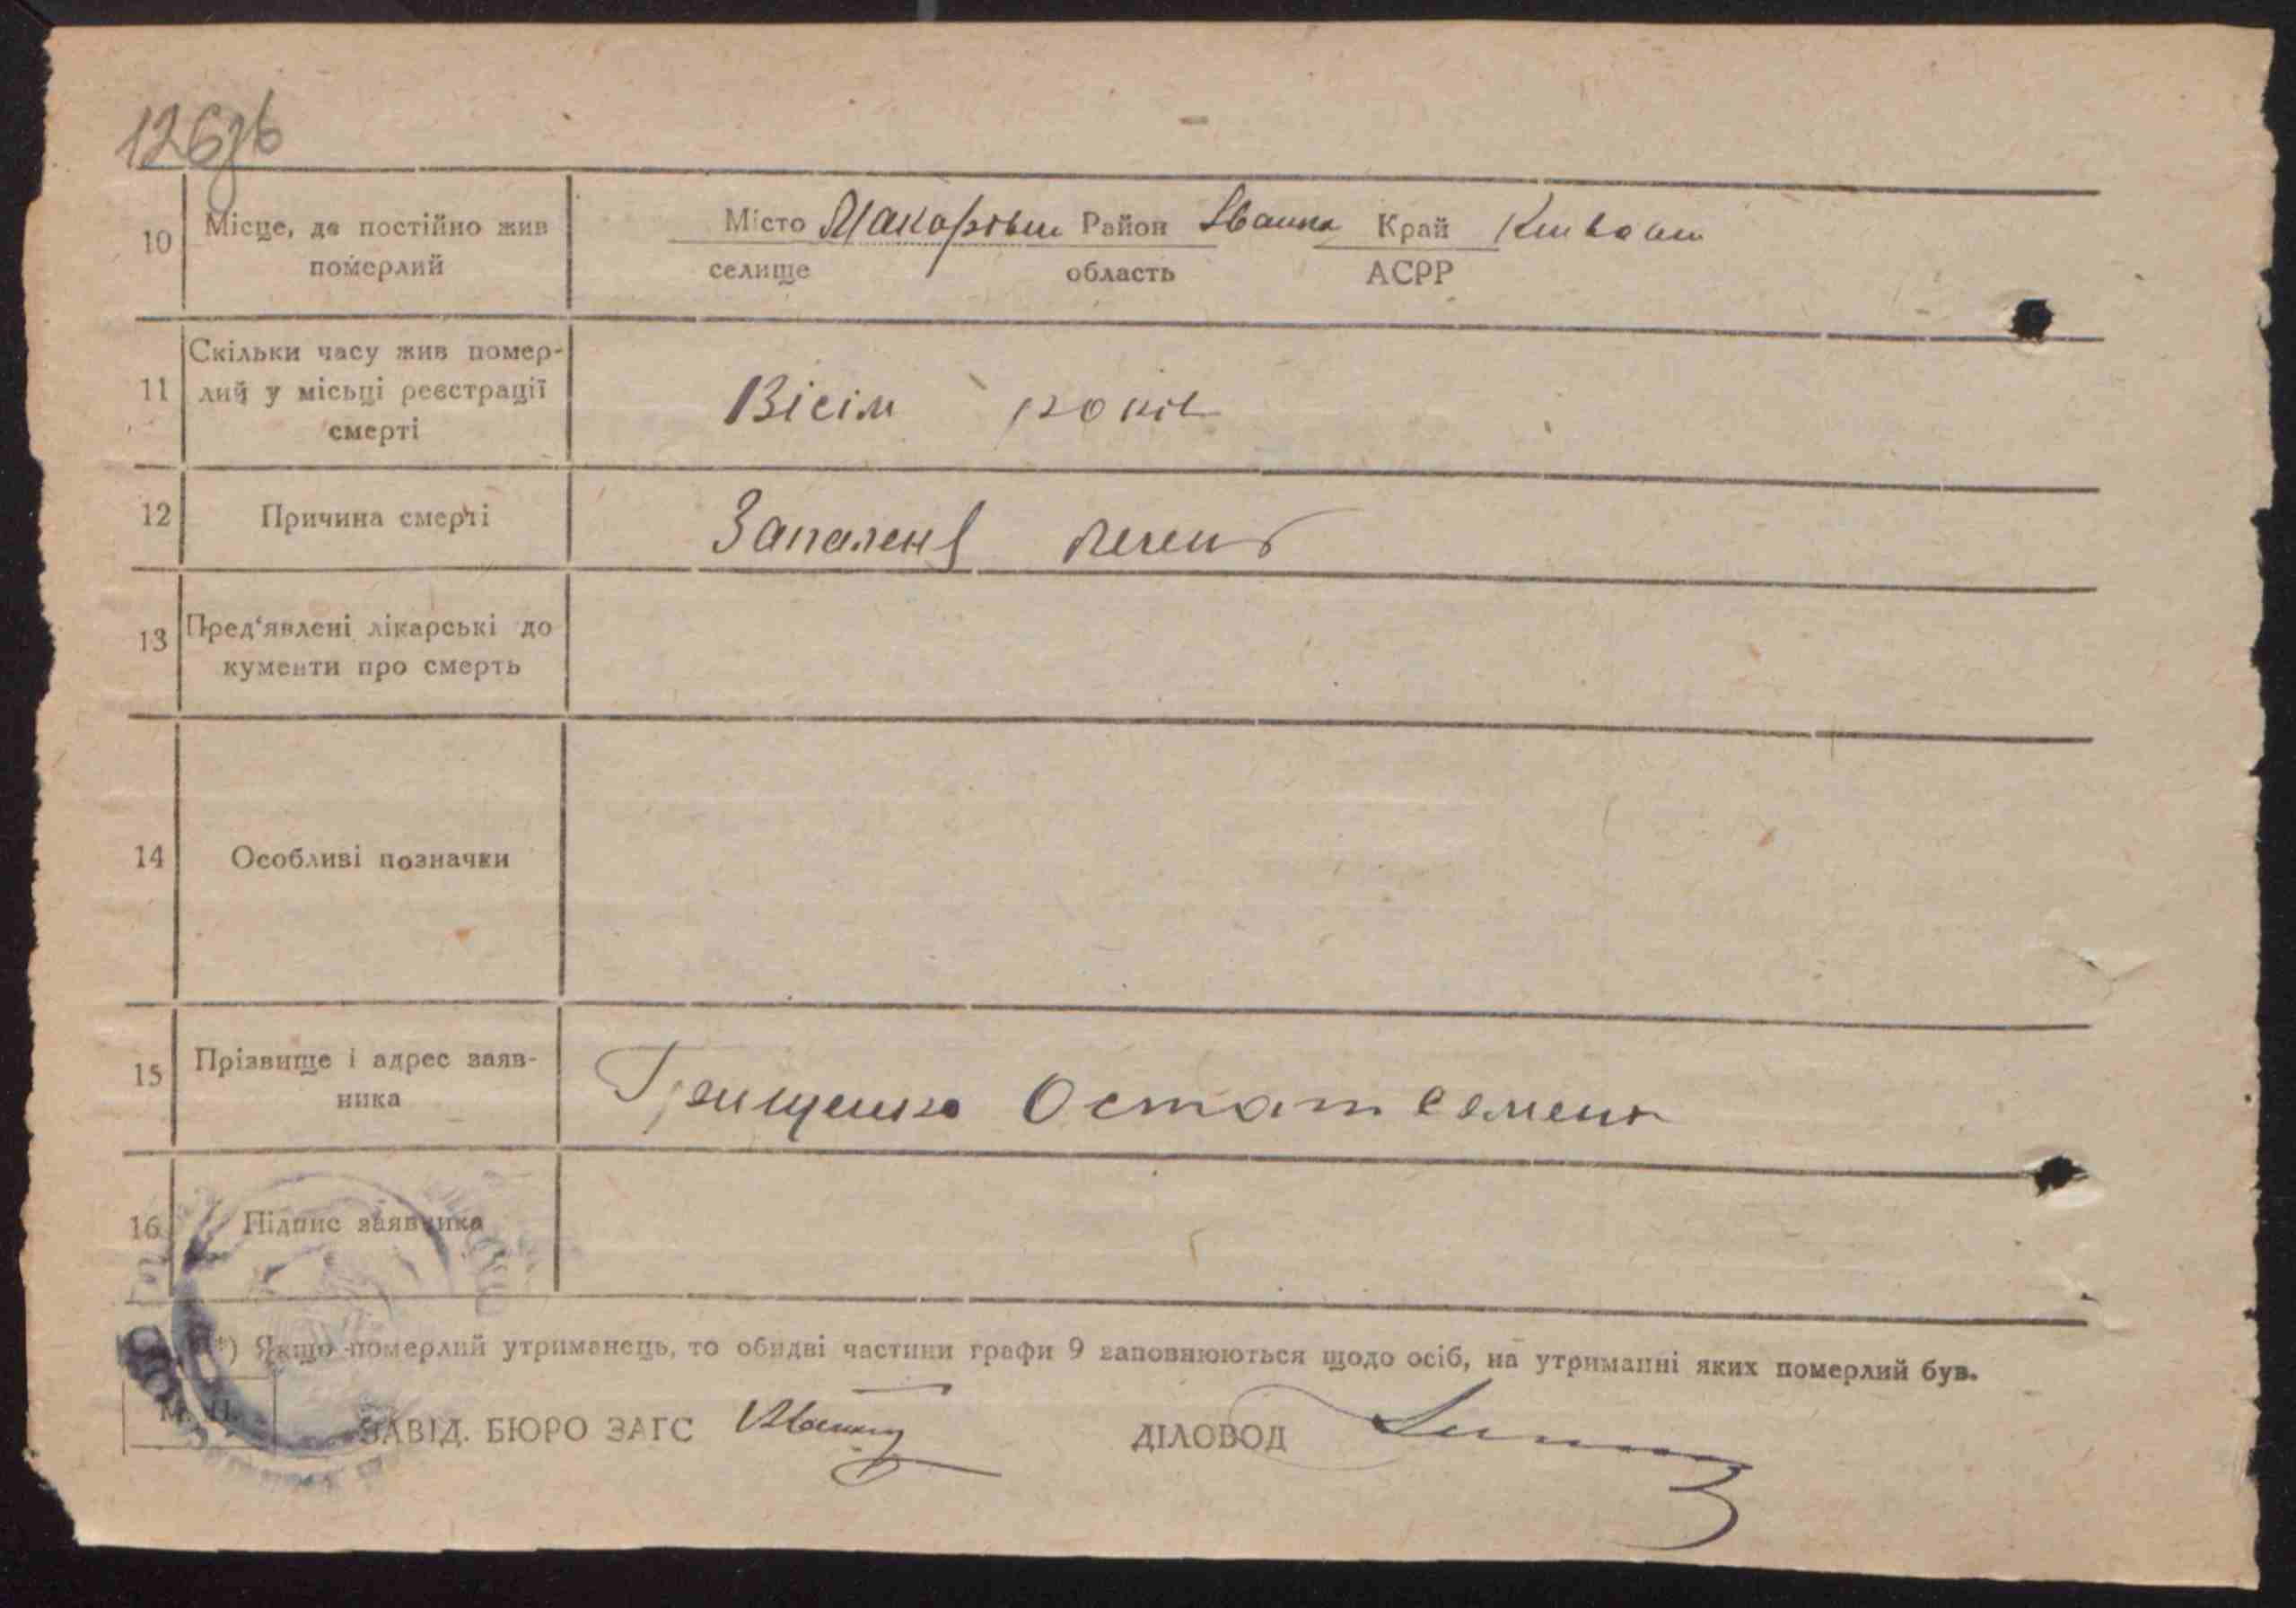 126зв
10 Місце, де постійно жив померлий
Місто Макарівки Район Іванка Край Київськ
селище область АСРР
11 Скільки часу жив помер-
лий у місьці реєстрації
смерті
Вісім років
12 Причина смерті Запаленя печень
13 Пред'явлені лікарські до
кументи про смерть
14 Особливі позначки
15 Прізвище і адрес заяв-
ника
Грищенко Остап семен
16 Підпис заявника
*) Якщо померлий утриманець, то обидві частини графи 9 заповнюються щодо осіб, на утриманні яких померлий був.
М. П.
ЗАВІД. БЮРО ЗАГС ДІЛОВОД